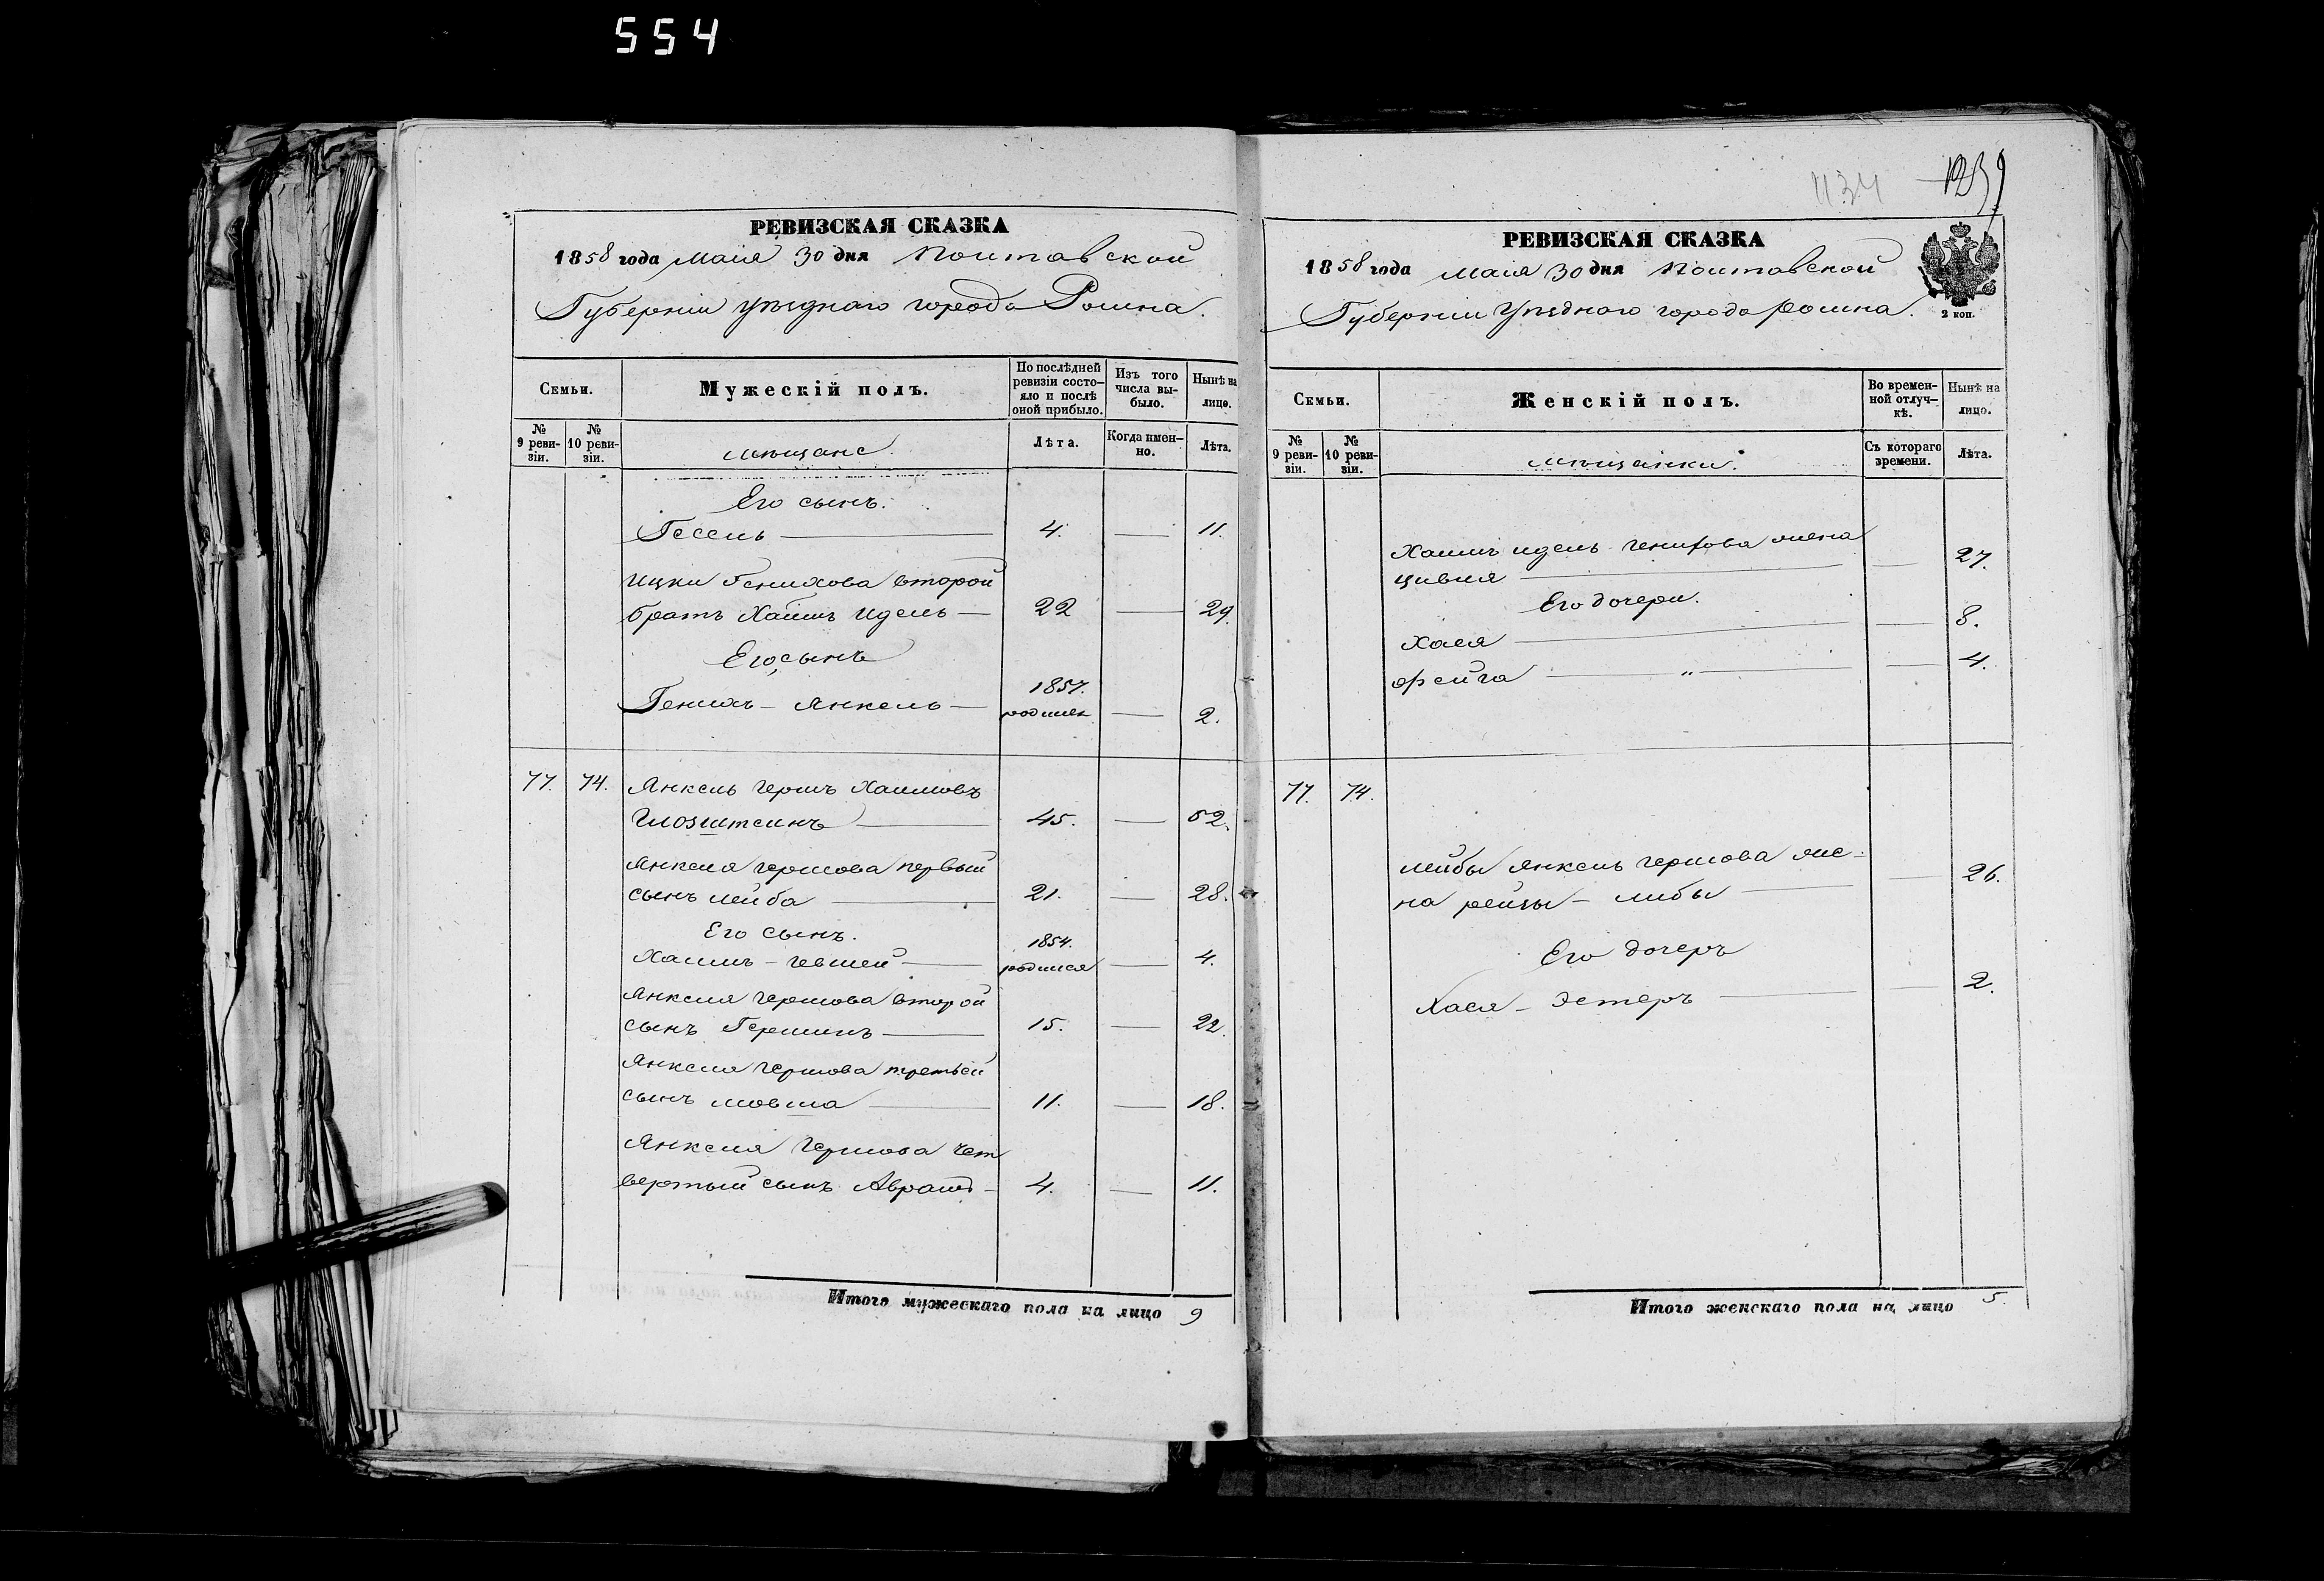 554
РЕВИЗСКАЯ СКАЗКА
1858 года Маія 30 дня Полтавской
Губерніи уѣзднаго города Ромна.
Семьи.
Мужескій полъ.
По послѣдней ревизіи состояло и послѣ оной прибыло.
Изъ того числа выбыло.
Нынѣ на лицо.
№ 9 ревизіи.
№ 10 ревизіи.
мѣщане.
Лѣта.
Когда именно.
Лѣта.
Его сынъ.
Гесель 4. 11.
Ицки Генихова второй
братъ Хаимъ Идель 22 29.
Его сынъ
1857.
Генихъ - Янкель родился 2.
77. 74. Янкель Гершъ Хаимовъ
Глозштеинъ 45. 52.
Янкеля Гершова первый
сынъ Лейба 21. 28.
Его сынъ.
1854.
Хаимъ - Евшей родился 4.
Янкеля Гершова второй
сынъ Гершинъ 15. 22.
Янкеля Гершова третьей
сынъ Мовша 11. 18.
Янкеля Гершова чет
вертый сынъ Абрамъ 4. 11.
Итого мужескаго пола на лицо 9
1134 1239
РЕВИЗСКАЯ СКАЗКА
1858 года Маія 30 дня Полтавской
Губерніи Уѣзднаго города Ромна.
2 коп.
Семьи.
Женскій полъ.
Во временной отлучкѣ.
Нынѣ на лицо.
№ 9 ревизіи.
№ 10 ревизіи.
мѣщанки.
Съ котораго времени.
Лѣта.
Хаимъ Идель Генихова жена
Цивія 27.
Его дочери.
Хася 8.
Фейга " 4.
77. 74.
Лейбы Янкель Гершова же-
на Рейзы - Либы 26.
Его дочеръ
Хася - Эстеръ 2.
Итого женскаго пола на лицо 5.